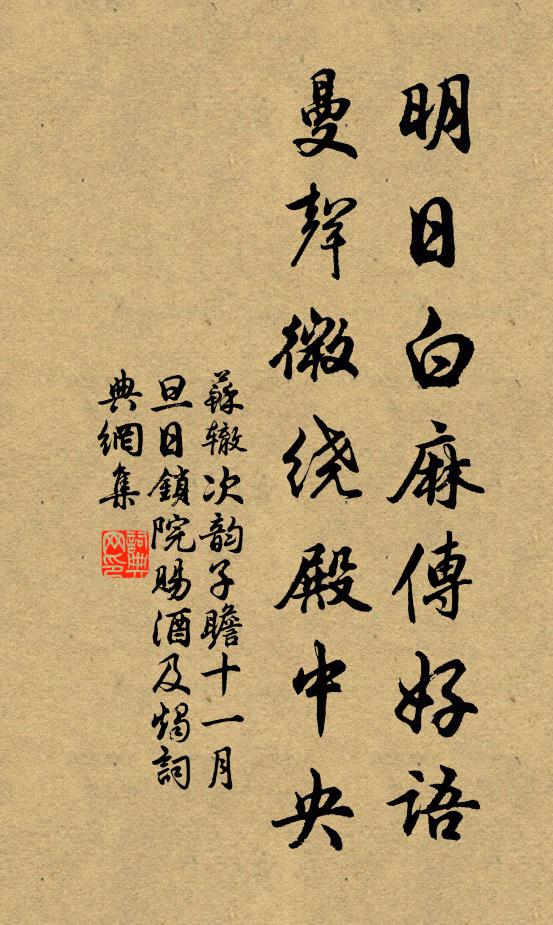 明日白麻傳好語
曼聲微绕殿中央
蘇辙次韵子瞻十一月
旦日鎖院賜酒及燭詞
典網集
詞典
网印